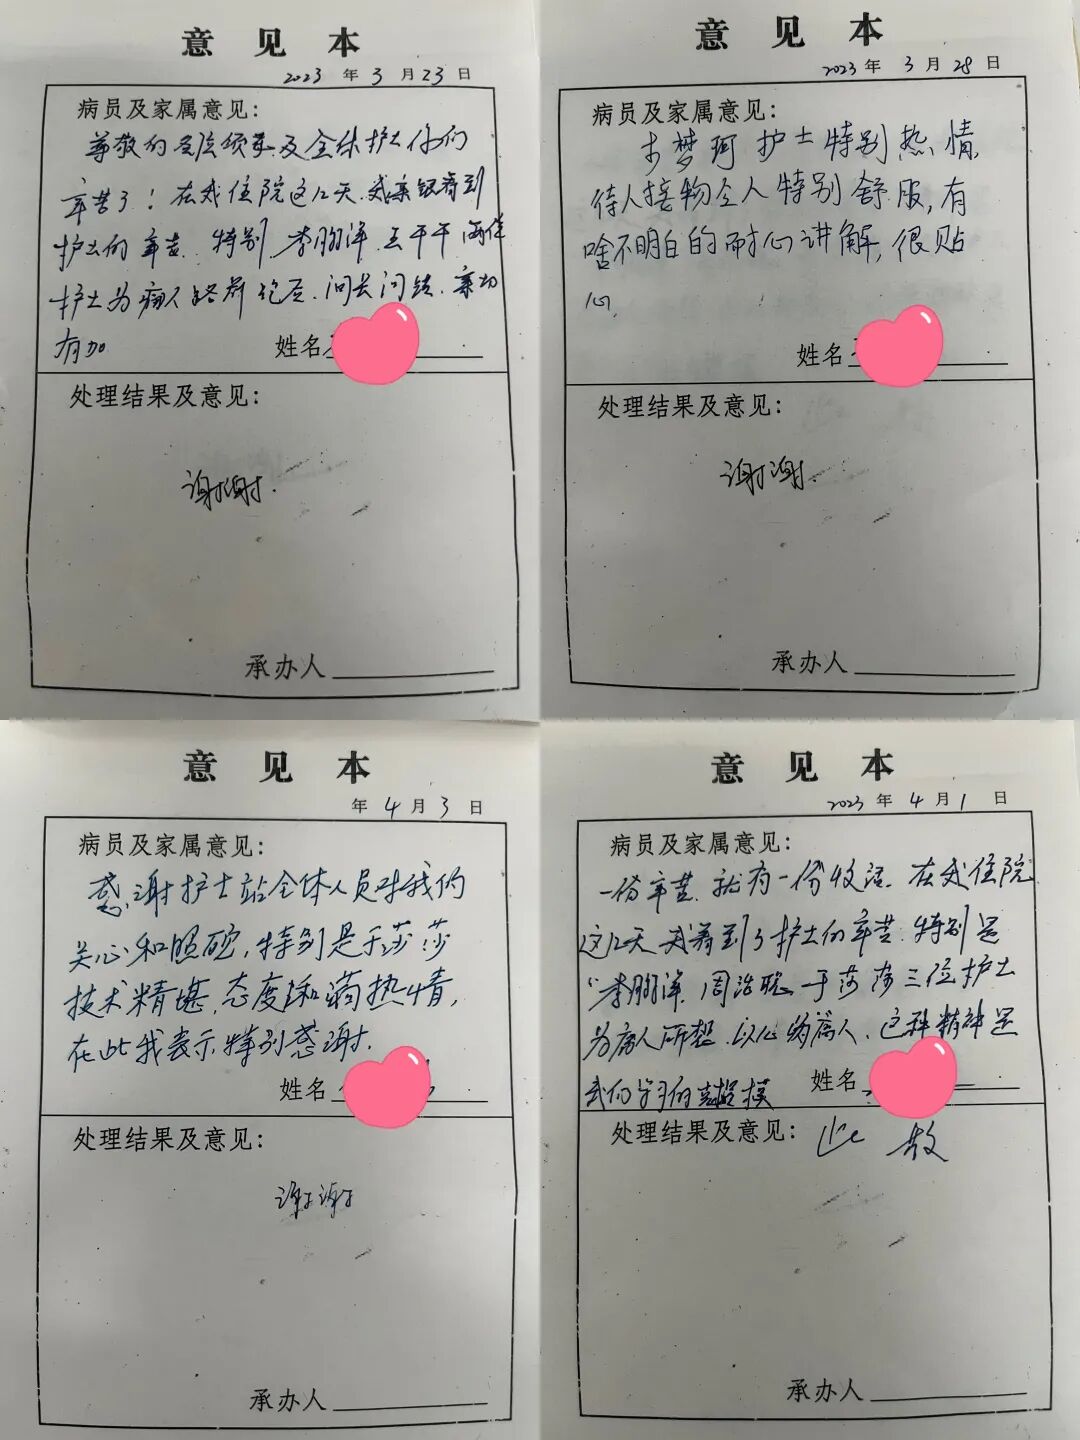 意见本
2023年3月23日
病员及家属意见：
尊敬的各位领导及全体护士你们
辛苦了！在我住院这几天.我亲眼看到
护士的辛苦.特别李朋泽.王干干两位
护士为病人 问长问短.亲切
有加
姓名
处理结果及意见：
谢谢.
承办人
意见本
2023年3月28日
病员及家属意见：
梦珂护士特别热情,
待人接物令人特别舒服,有
啥不明白的耐心讲解,很贴
心.
姓名
处理结果及意见：
谢谢.
承办人
意见本
年4月3日
病员及家属意见：
感谢护士站全体人员对我们
关心和照顾,特别是于莎莎
技术精堪.态度和蔼热情,
在此我表示特别感谢.
姓名
处理结果及意见：
谢谢
承办人
意见本
2023年4月1日
病员及家属意见：
一份辛苦.就有一份收活.在我住院
这几天我看到了护士们辛苦.特别是
“李朋泽.周治聪.于莎莎三位护士
为病人所想.以心 病人.这种精神是
我们学习的 模
姓名
处理结果及意见：
此致
承办人